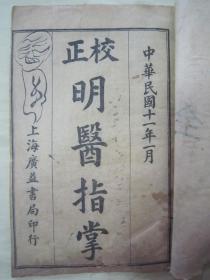 中華民國十一年一月
校正
明醫指掌
上海廣益書局印行